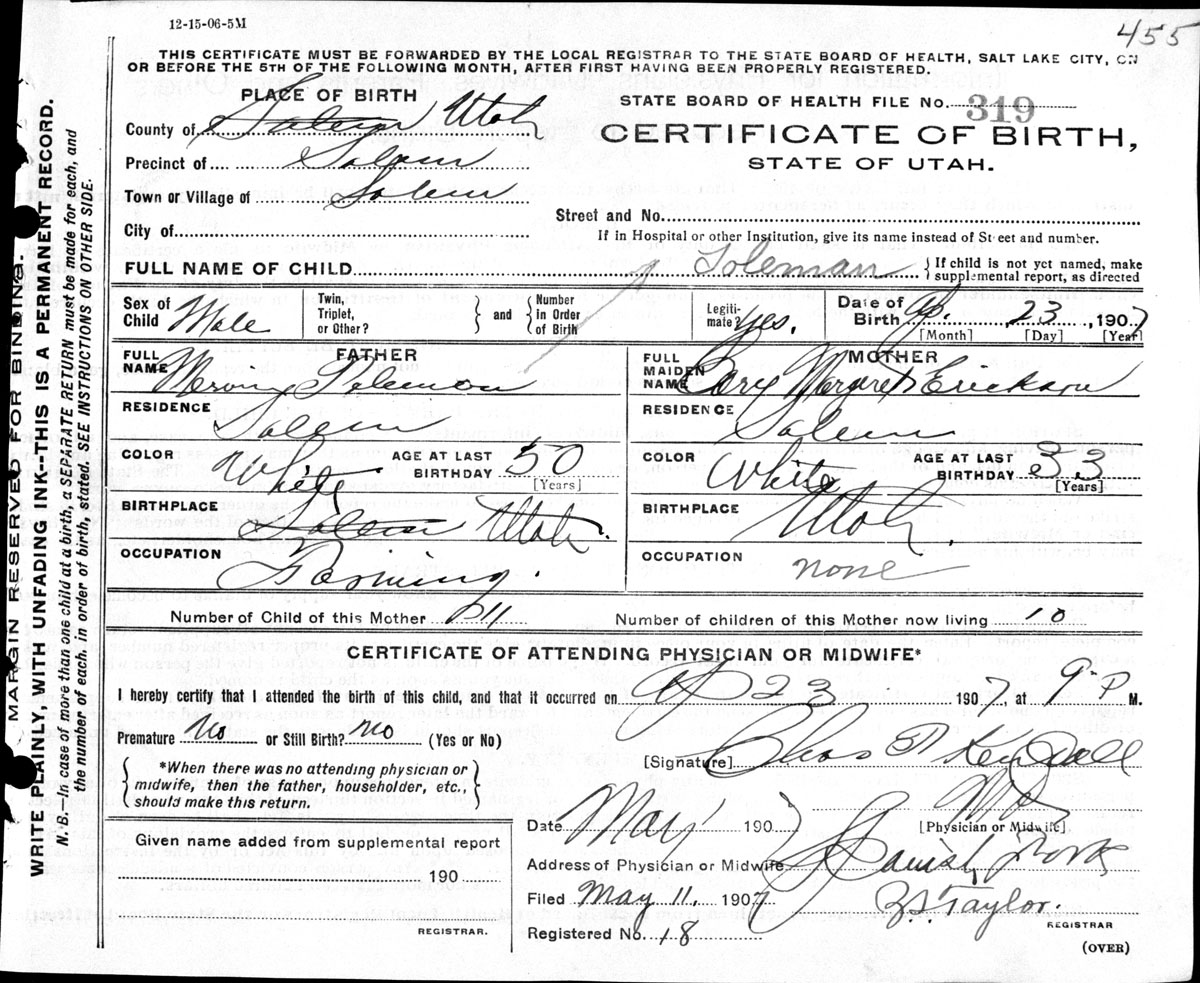 12-15-06-5M
455
THIS CERTIFICATE MUST BE FORWARDED BY THE LOCAL REGISTRAR TO THE STATE BOARD OF HEALTH, SALT LAKE CITY, ON
OR BEFORE THE 5TH OF THE FOLLOWING MONTH, AFTER FIRST HAVING BEEN PROPERLY REGISTERED.
PLACE OF BIRTH
STATE BOARD OF HEALTH FILE No. 319
County of Salem Utah
CERTIFICATE OF BIRTH,
Precinct of Salem
STATE OF UTAH.
Town or Village of Salem
Street and No.
City of
If in Hospital or other Institution, give its name instead of Street and number.
FULL NAME OF CHILD
{If child is not yet named, make
supplemental report, as directed
Sex of Child Male
Twin, Triplet, or Other? } and { Number in Order of Birth
Legiti-mate? Yes.
Date of Birth Ap. 23, 1907
[Month] [Day] [Year]
FULL NAME FATHER
FULL MAIDEN NAME MOTHER Margaret Erickson
RESIDENCE Salem
RESIDENCE Salem
COLOR White AGE AT LAST BIRTHDAY 50
[Years]
COLOR White AGE AT LAST BIRTHDAY 33
[Years]
BIRTHPLACE Salem Utah.
BIRTHPLACE Utah.
OCCUPATION Farming.
OCCUPATION none
Number of Child of this Mother 11
Number of children of this Mother now living 10
CERTIFICATE OF ATTENDING PHYSICIAN OR MIDWIFE*
I hereby certify that I attended the birth of this child, and that it occurred on Ap 23 1907, at 9 P M.
Premature No or Still Birth? No (Yes or No)
[Signature] Chas
MD
[Physician or Midwife]
{*When there was no attending physician or
midwife, then the father, householder, etc.,
should make this return.}
Date May 190
Address of Physician or Midwife Spanish Fork
Given name added by supplemental report
190
REGISTRAR.
Filed May 11, 1907 Taylor.
REGISTRAR
Registered No. 18
(OVER)
MARGIN RESERVED FOR BINDING.
WRITE PLAINLY, WITH UNFADING INK--THIS IS A PERMANENT RECORD.
N. B.--In case of more than one child at a birth, a SEPARATE RETURN must be made for each, and
the number of each, in order of birth, stated. SEE INSTRUCTIONS ON OTHER SIDE.